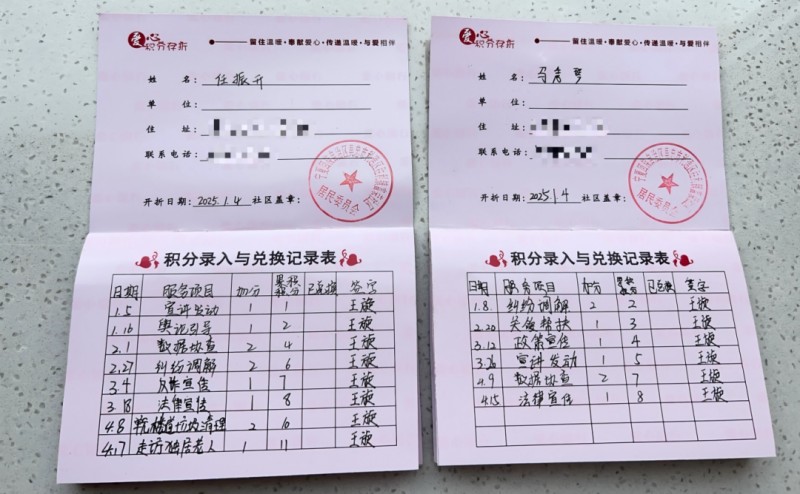 爱心积分存折
留住温暖·奉献爱心·传递温暖·与爱相伴
姓名：任振升
单位：
住址：
联系电话：
开折日期：2025.1.4 社区盖章：
居民委员会
积分录入与兑换记录表
日期 服务项目 加分 累积积分 已兑换 签字
1.5 宣讲发动 1 1 王旋
1.16 舆论引导 1 2 王旋
2.1 数据协查 2 4 王旋
2.27 纠纷调解 2 6 王旋
3.4 反诈宣传 1 7 王旋
3.18 法律宣传 1 8 王旋
4.8 清理 2 10 王旋
4.17 走访独居老人 1 11 王旋
爱心积分存折
留住温暖·奉献爱心·传递温暖·与爱相伴
姓名：马
单位：
住址：
联系电话：
开折日期：2025.1.4 社区盖章：
居民委员会
积分录入与兑换记录表
日期 服务项目 加分 累积积分 已兑换 签字
1.8. 纠纷调解 2 2 王旋
2.20 关爱帮扶 1 3 王旋
3.12 政策宣传 1 4 王旋
3.26 宣讲发动 1 5 王旋
4.9 数据协查 2 7 王旋
4.15 法律宣传 1 8 王旋